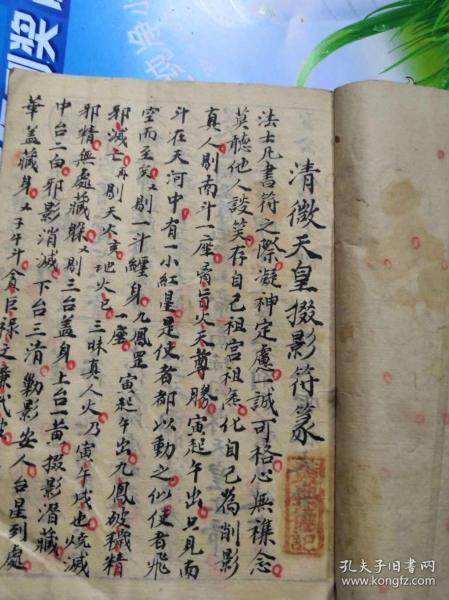 清微天皇掇影符篆
法士凡書符之際凝神定慮一誠可格心無襍念
莫聽他人談笑存自己祖宫祖炁化自己為削影
真人剔南斗一座 旨火天尊 寅起午出只見南
斗在天河中有一小紅星是使者都以動之似使者飛
空而至矣又剔一斗纏身九鳳罡 寅起午出九鳳破穢精
邪滅亡再剔天火 地火 三昧真人火乃寅午戌也燒滅
邪精無處藏躲又剔三台盖身上台一黄掇影潛藏
中台二白邪影消滅下台三清 影安人台星到處
華盖藏身 子午斗貪巨祿文廉武
孔夫子旧书网